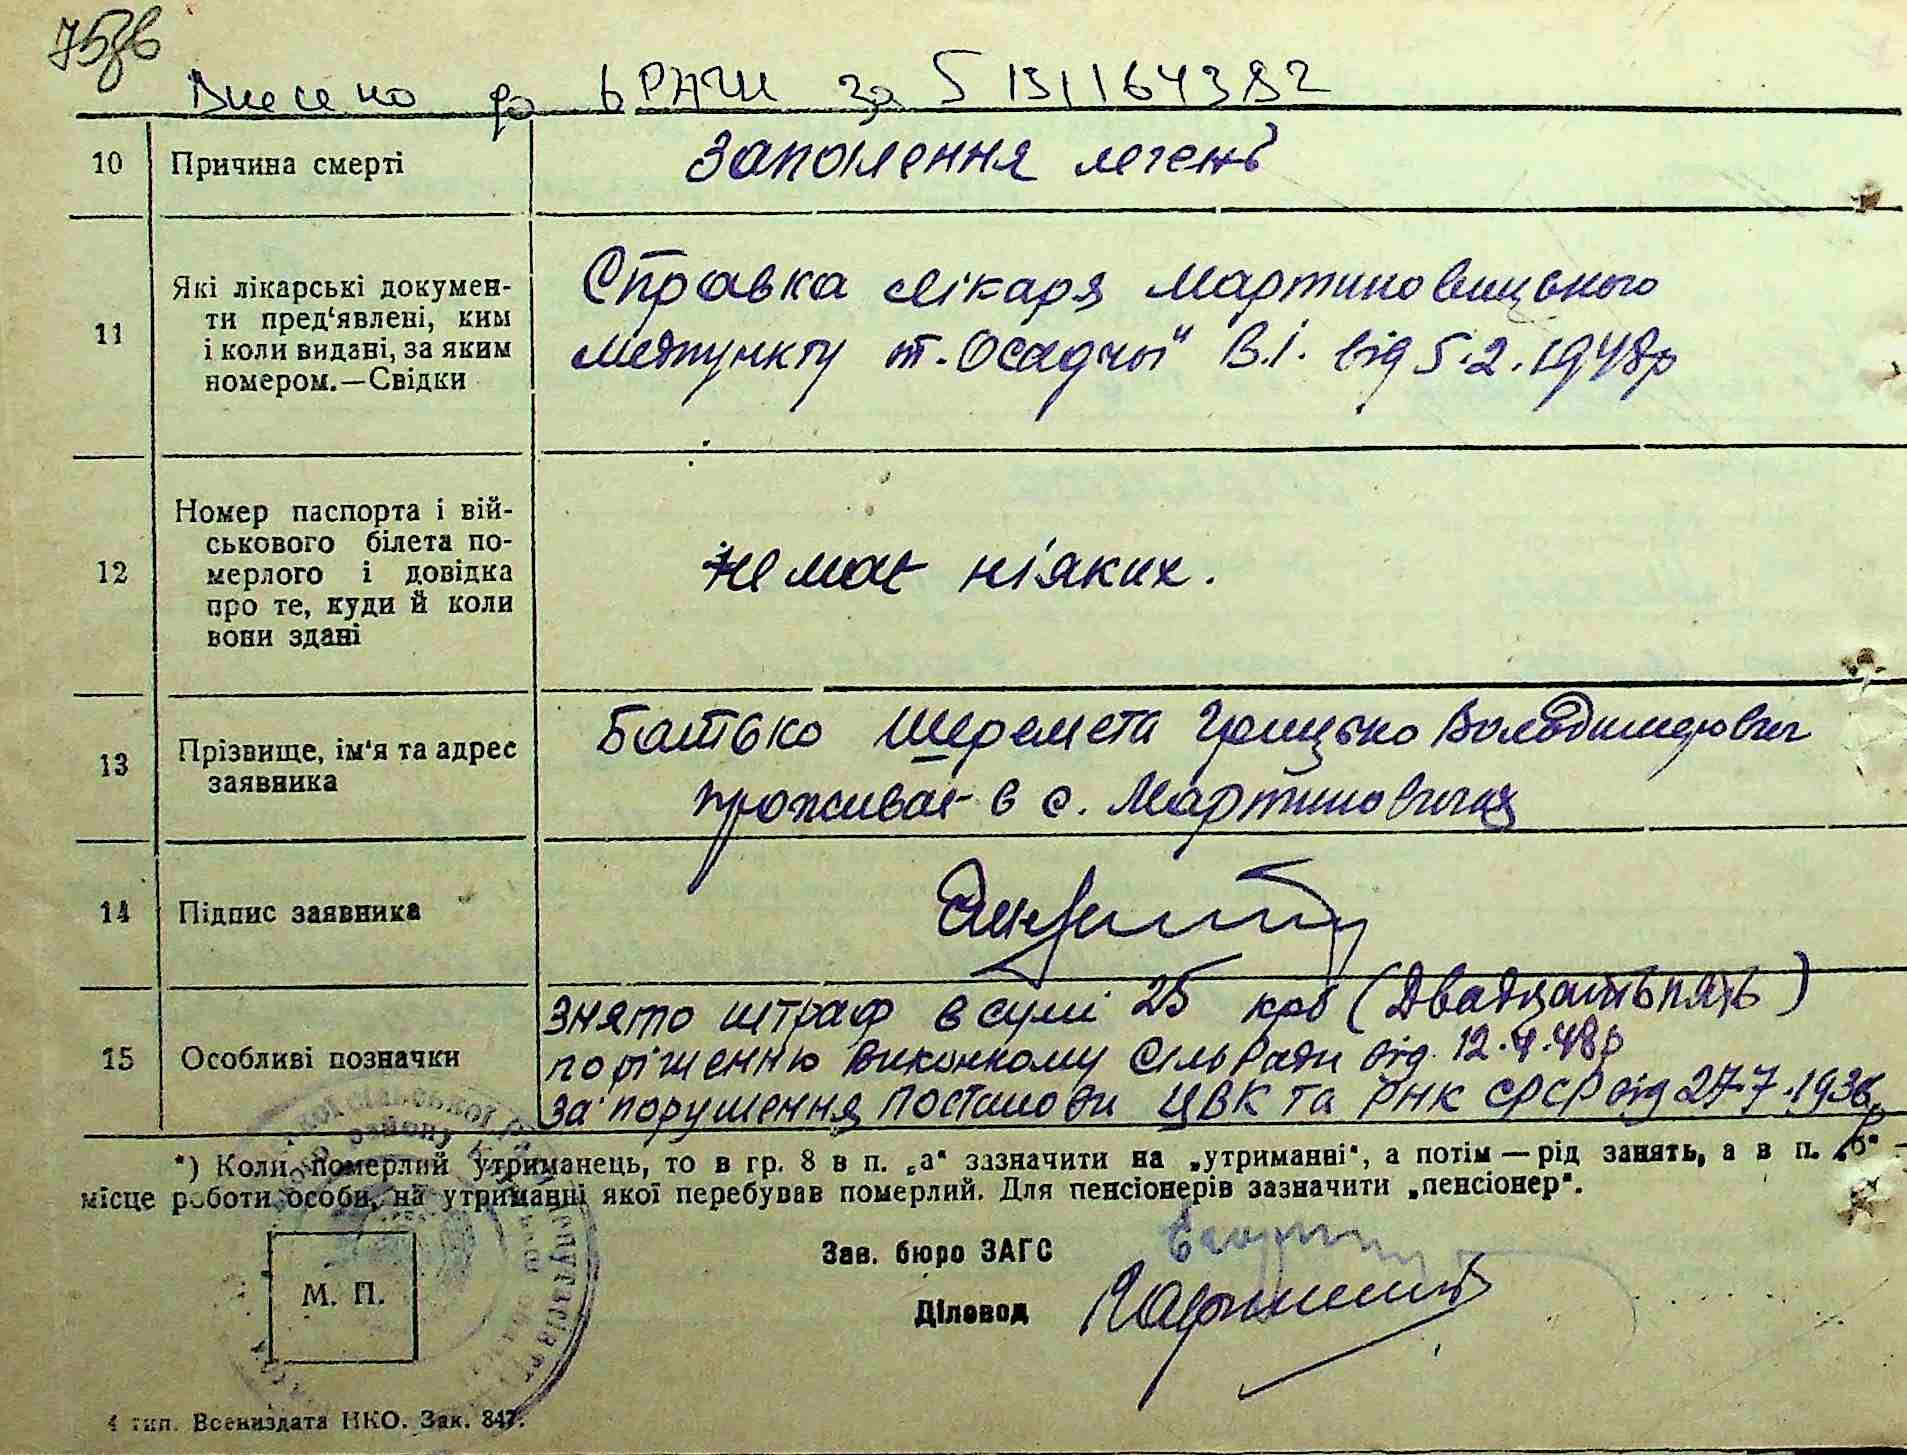 Внесено до ЬРАЦИ за
10 Причина смерті Заполення легень
11 Які лікарські докумен-
ти пред'явлені, ким
і коли видані, за яким
номером.—Свідки
Справка лікаря Мартиновицького
медпункту т. Осадчої В.І. від 5.2.1948р
12 Номер паспорта і вій-
ськового білета по-
мерлого і довідка
про те, куди й коли
вони здані
Немає ніяких.
13 Прізвище, ім'я та адрес
заявника
Батько Шеремета Грицько Володимерович
проживає в с. Мартиновичи
14 Підпис заявника
15 Особливі позначки
Знято штраф в сумі 25 крб (Двадцатьпять)
по рішенню виконкому СільРади від 12.4.48р
за порушення постанови ЦВК та РНК СРСР від 27.7.1936р
*) Коли померлий утриманець, то в гр. 8 в п. „а“ зазначити на „утриманні“, а потім — рід занять, а в п. „б“ —
місце роботи особи, на утриманні якої перебував померлий. Для пенсіонерів зазначити „пенсіонер“.
Зав. бюро ЗАГС
М. П.
Діловод
4 тип. Воениздата НКО. Зак. 847.